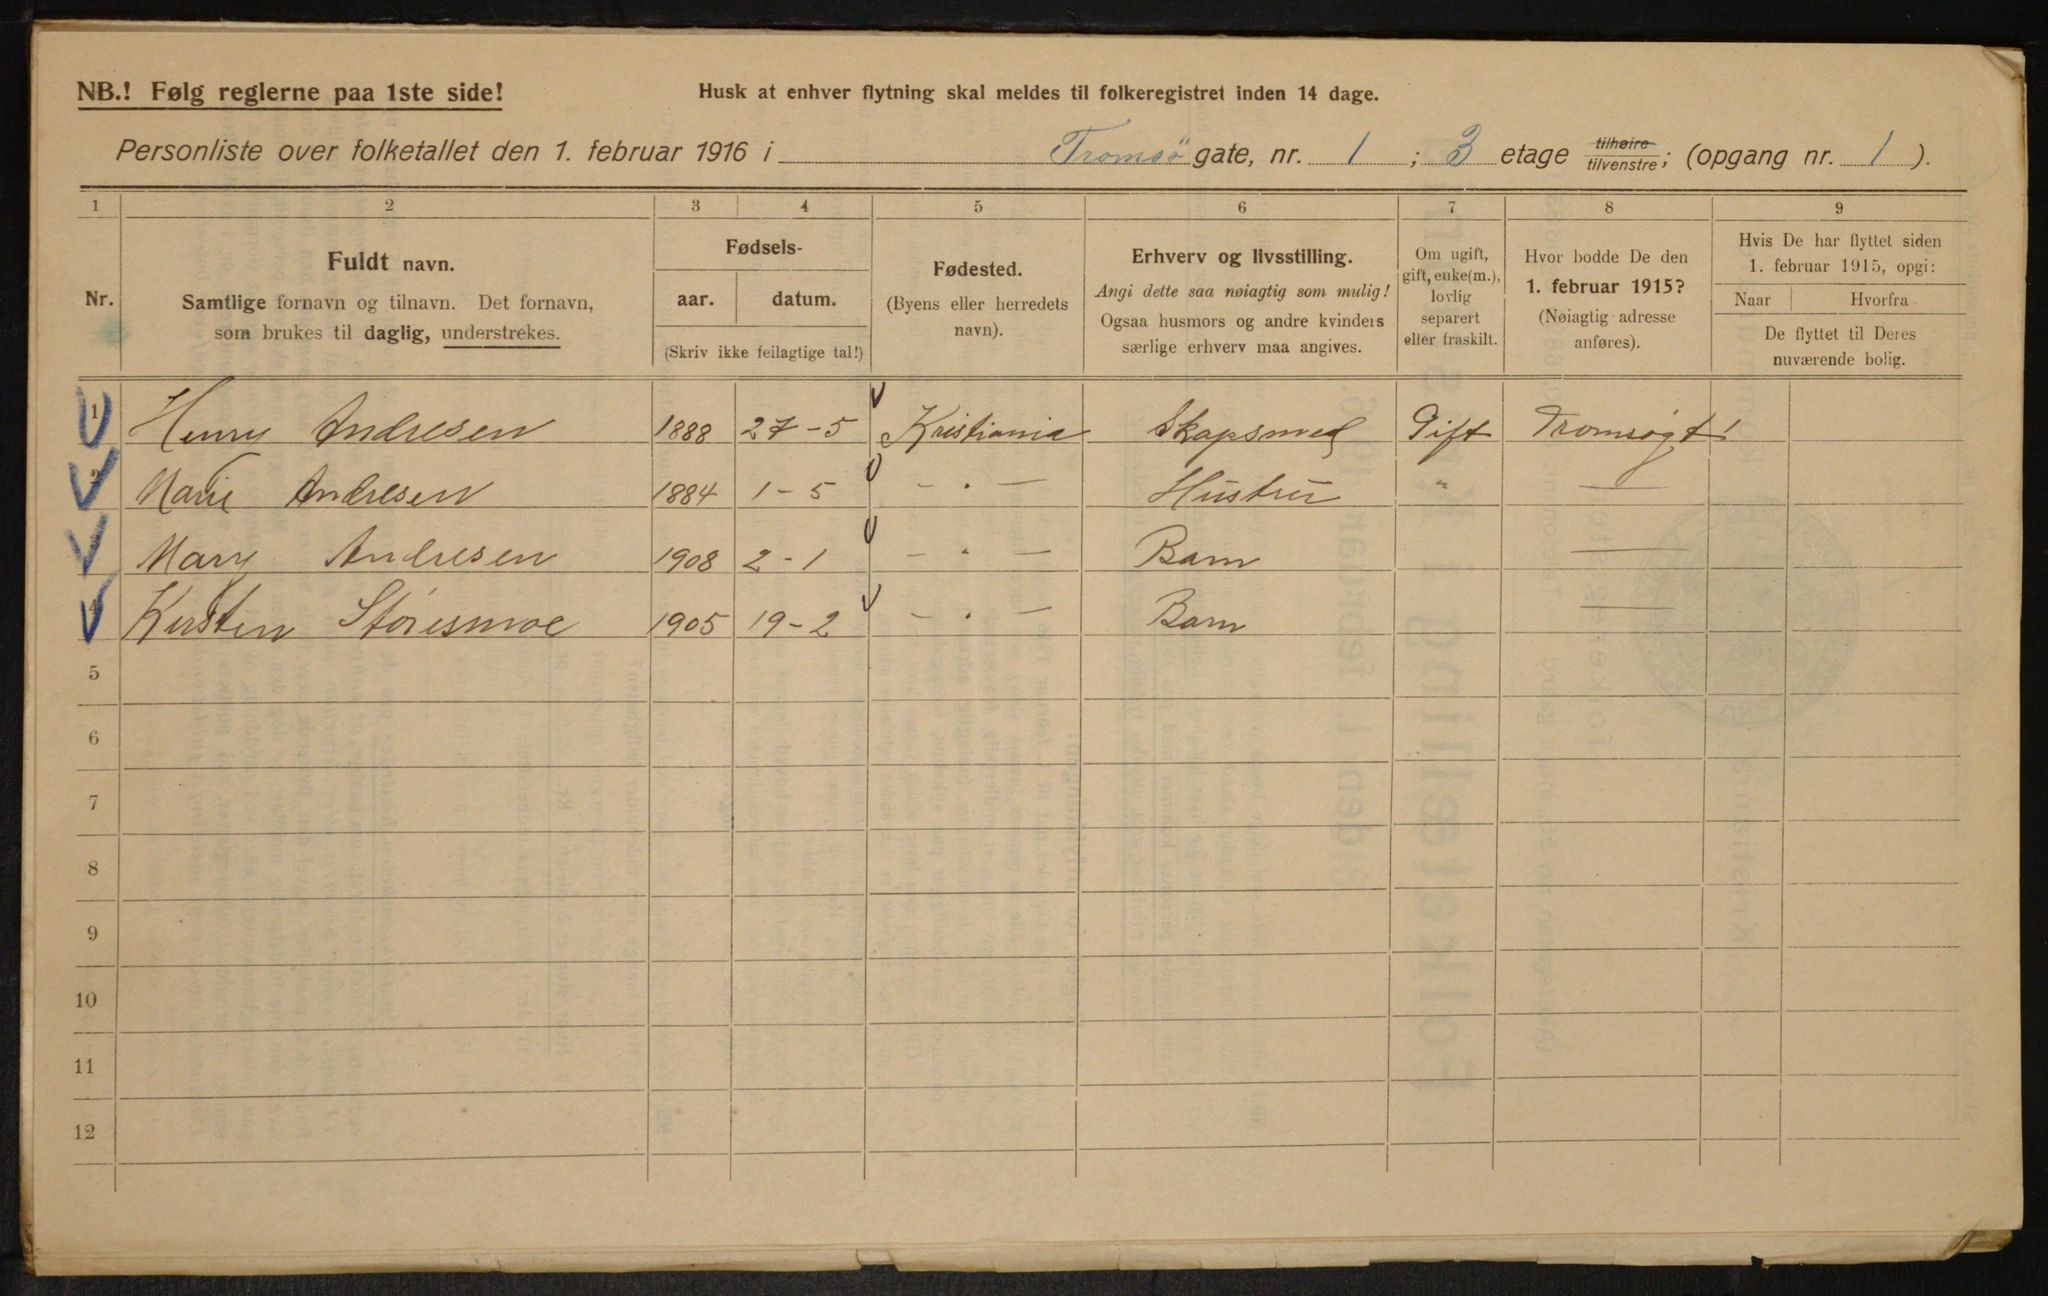 NB.! Følg reglerne paa 1ste side!
Husk at enhver flytning skal meldes til folkeregistret inden 14 dage.
Personliste over folketallet den 1. februar 1916 i Tromsö gate, nr. 1 ; 3 etage tilhøire tilvenstre; (opgang nr. 1 ).
1 2 3 4 5 6 7 8 9
Nr.
Fuldt navn.
Samtlige fornavn og tilnavn. Det fornavn,
som brukes til daglig, understrekes.
Fødsels-
aar. datum.
(Skriv ikke feilagtige tal!)
Fødested.
(Byens eller herredets
navn).
Erhverv og livsstilling.
Angi dette saa nøiagtig som mulig!
Ogsaa husmors og andre kvinders
særlige erhverv maa angives.
Om ugift,
gift, enke(m.),
lovlig
separert
eller fraskilt.
Hvor bodde De den
1. februar 1915?
(Nøiagtig adresse
anføres).
Hvis De har flyttet siden
1. februar 1915, opgi:
Naar Hvorfra
De flyttet til Deres
nuværende bolig.
1 Henry Andresen 1888 27-5 Kristiania Skapsmed Gift Tromsøgt 1
2 Marie Andresen 1884 1-5 — . — Hustru " —
3 Mary Andresen 1908 2-1 — . — Barn —
4 Kirsten Støresmoe 1905 19-2 — . — Barn —
5
6
7
8
9
10
11
12